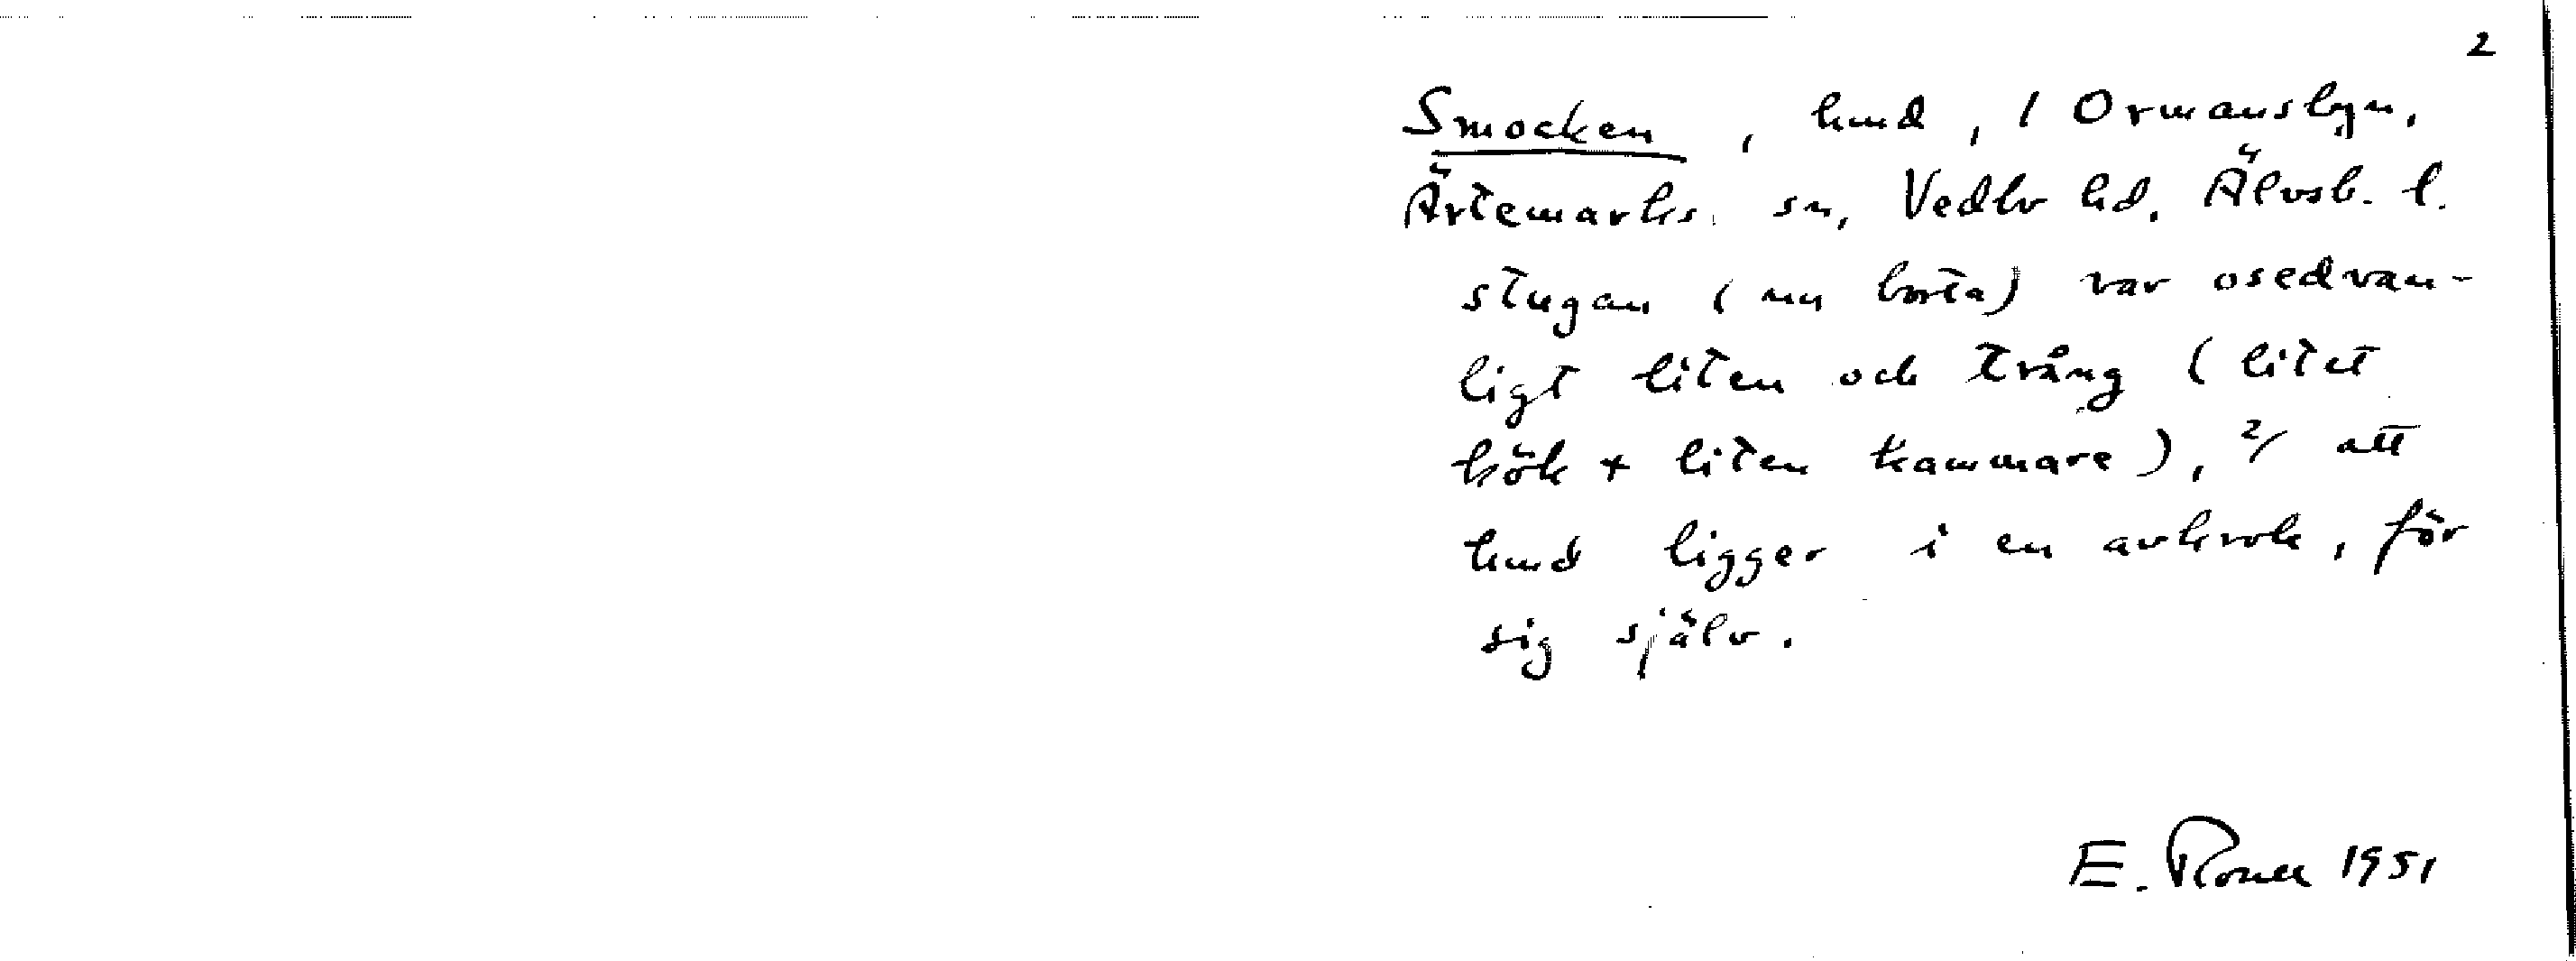 2
Smocken, hmd, / Ormansbyn,
Ärtemarks sn, Vedbo hd. Älvsb. l.
stugan (nu borta) var osedvan-
ligt liten och trång (litet
kök + liten kammare), 2/ att
hmd ligger i en avkrok, för
sig själv.
E. 1951